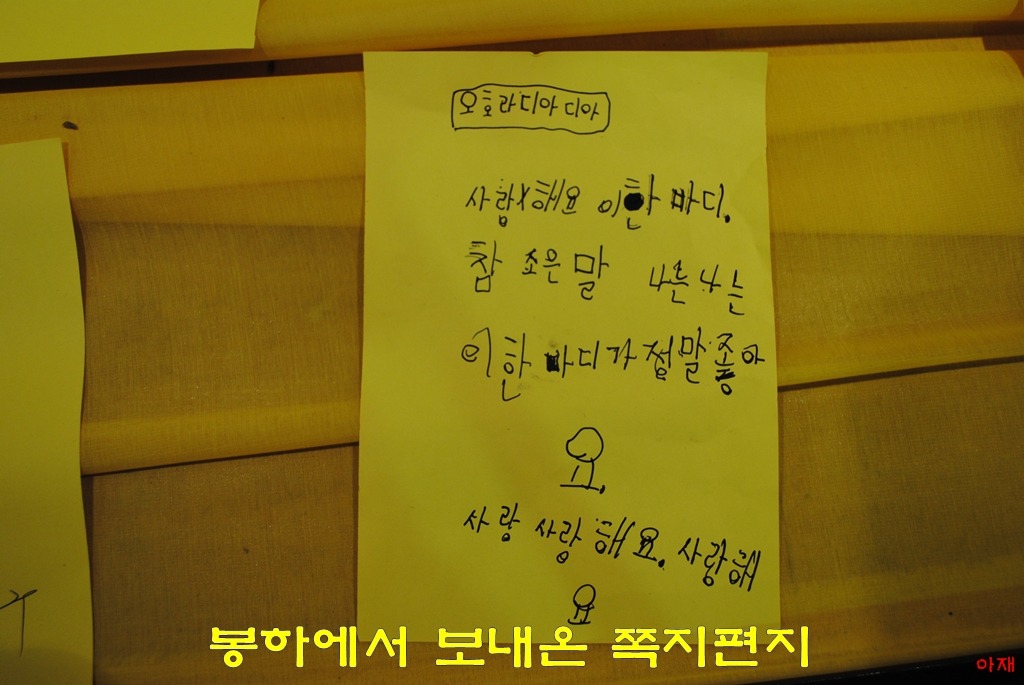 오호라디아디아
사랑해요 이한 마디.
참 조은 말 나는 나는
이한 마디가 정말좋아
요.
사랑 사랑해요. 사랑해
요
봉하에서 보내온 쪽지편지
아재